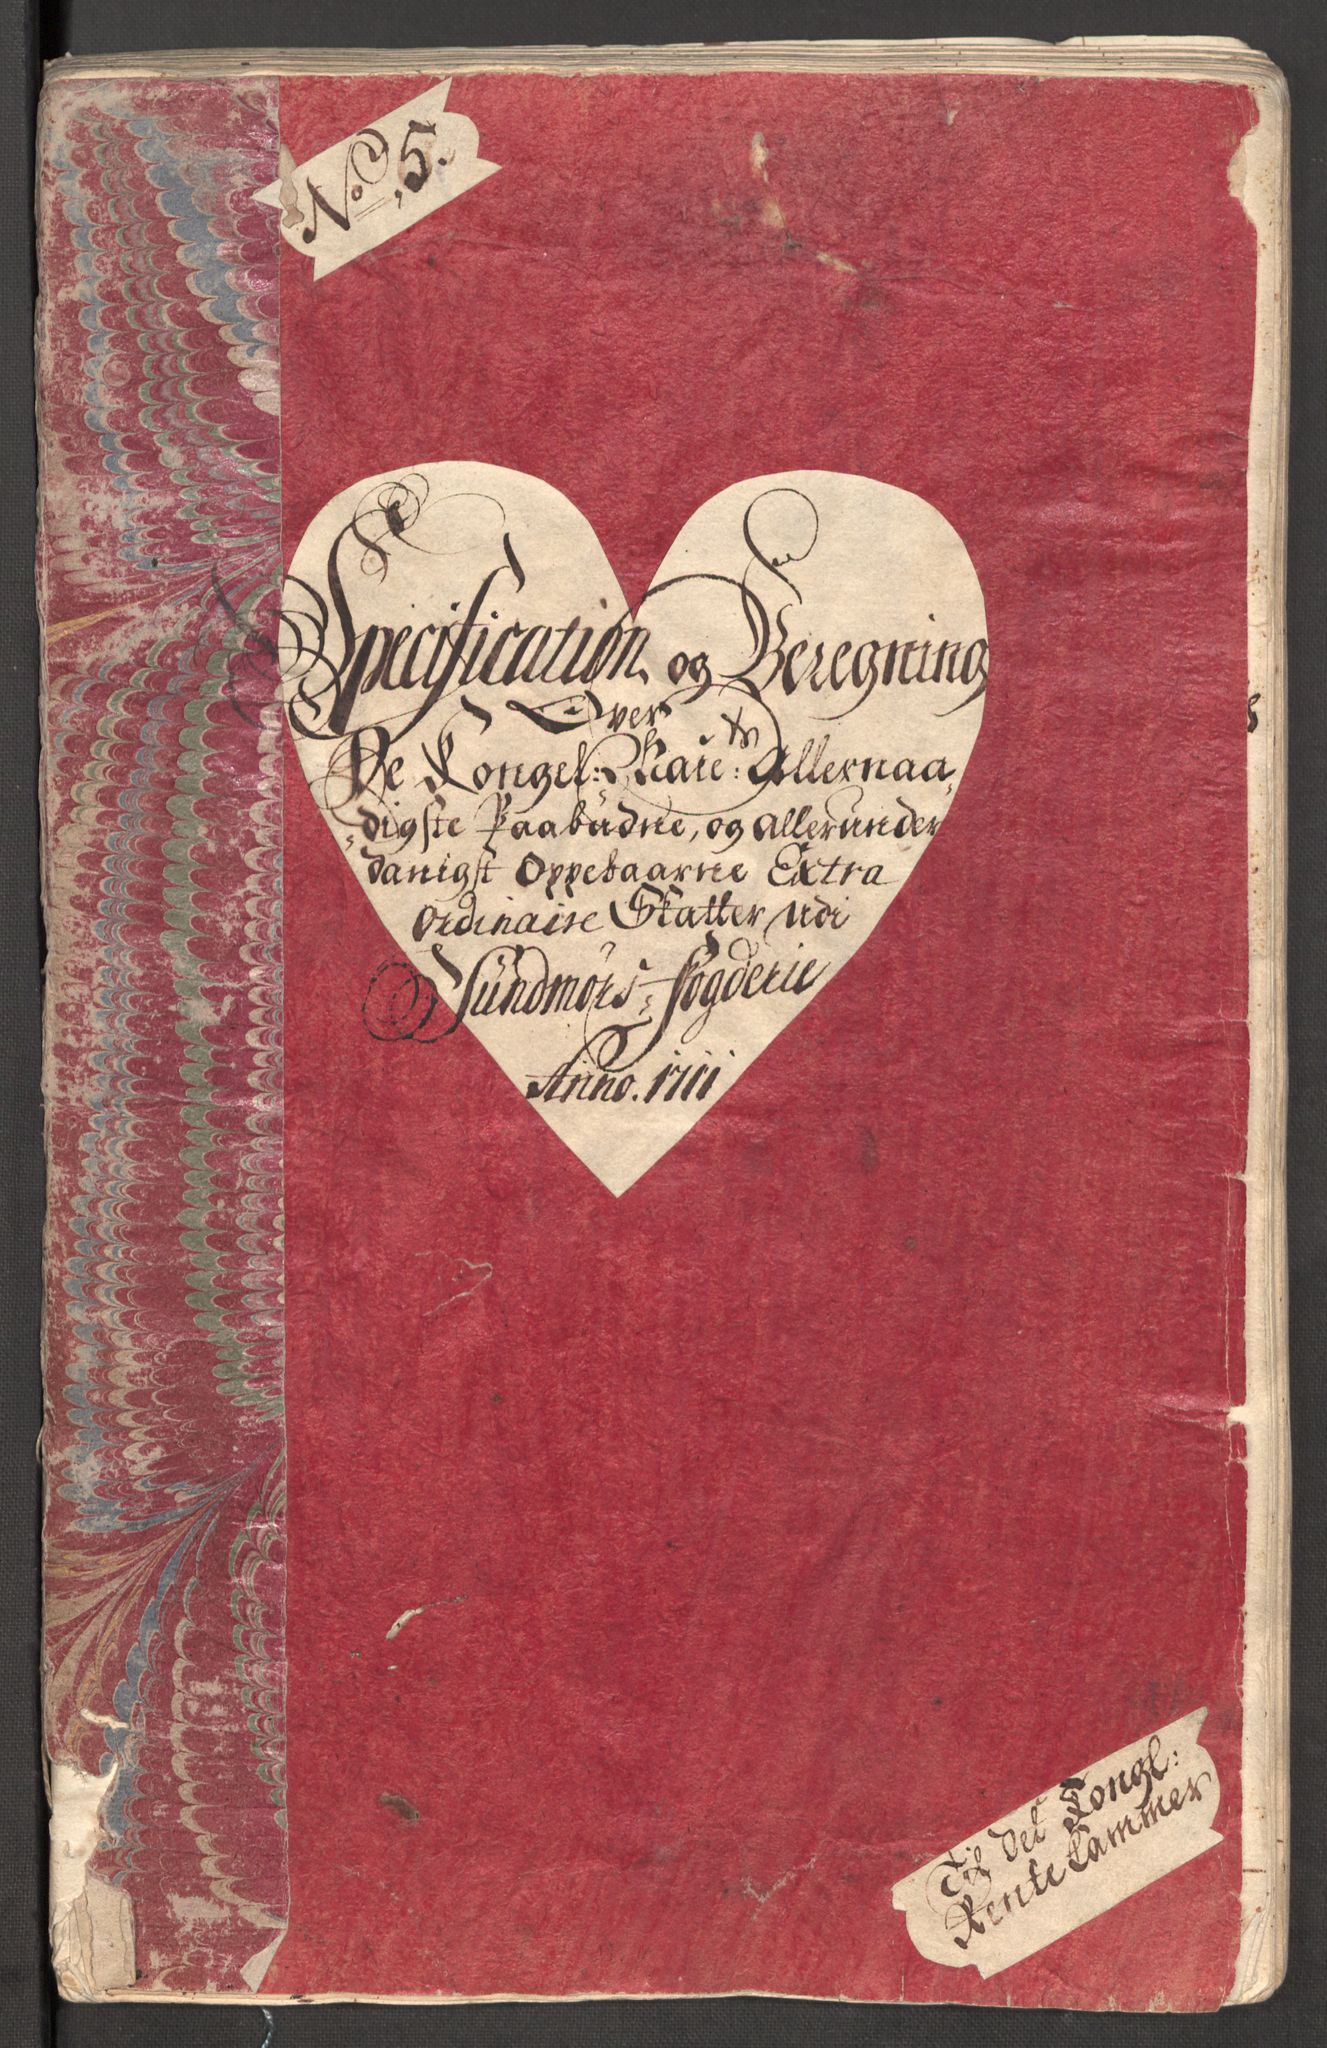 No. 5.
Specification og Beregning
Over
De Kongel: Maie:ts Allernaa„
„digste Paabudne, og allerunder
danigst Oppebaarne Extra
Ordinaire Skatter udi
Sundmørs„ fogderie
Anno. 1711
Til det Kongl:
Rente Cammer